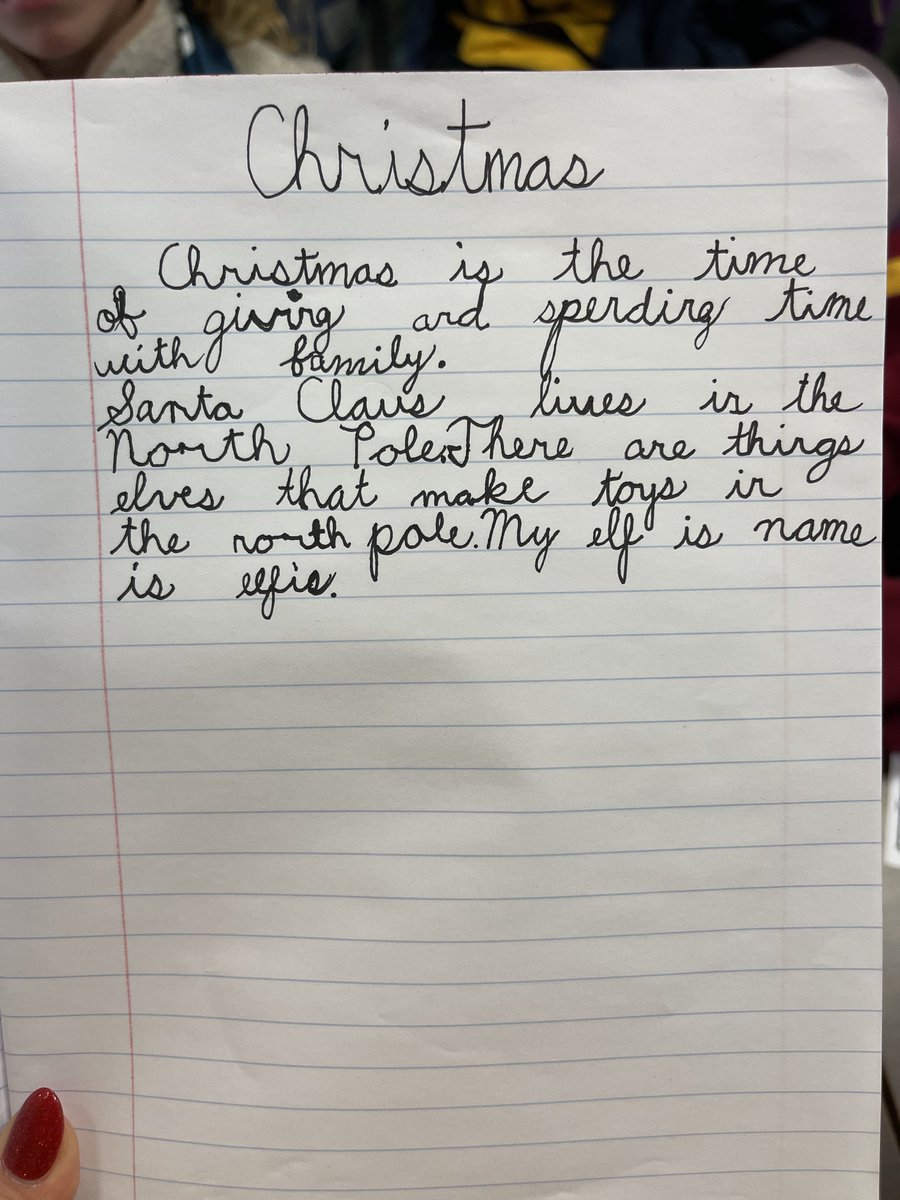 Christmas
Christmas is the time
of giving and spending time
with family.
Santa Claus lives in the
North Pole. There are things
elves that make toys in
the north pole. My elf is name
is elfie.